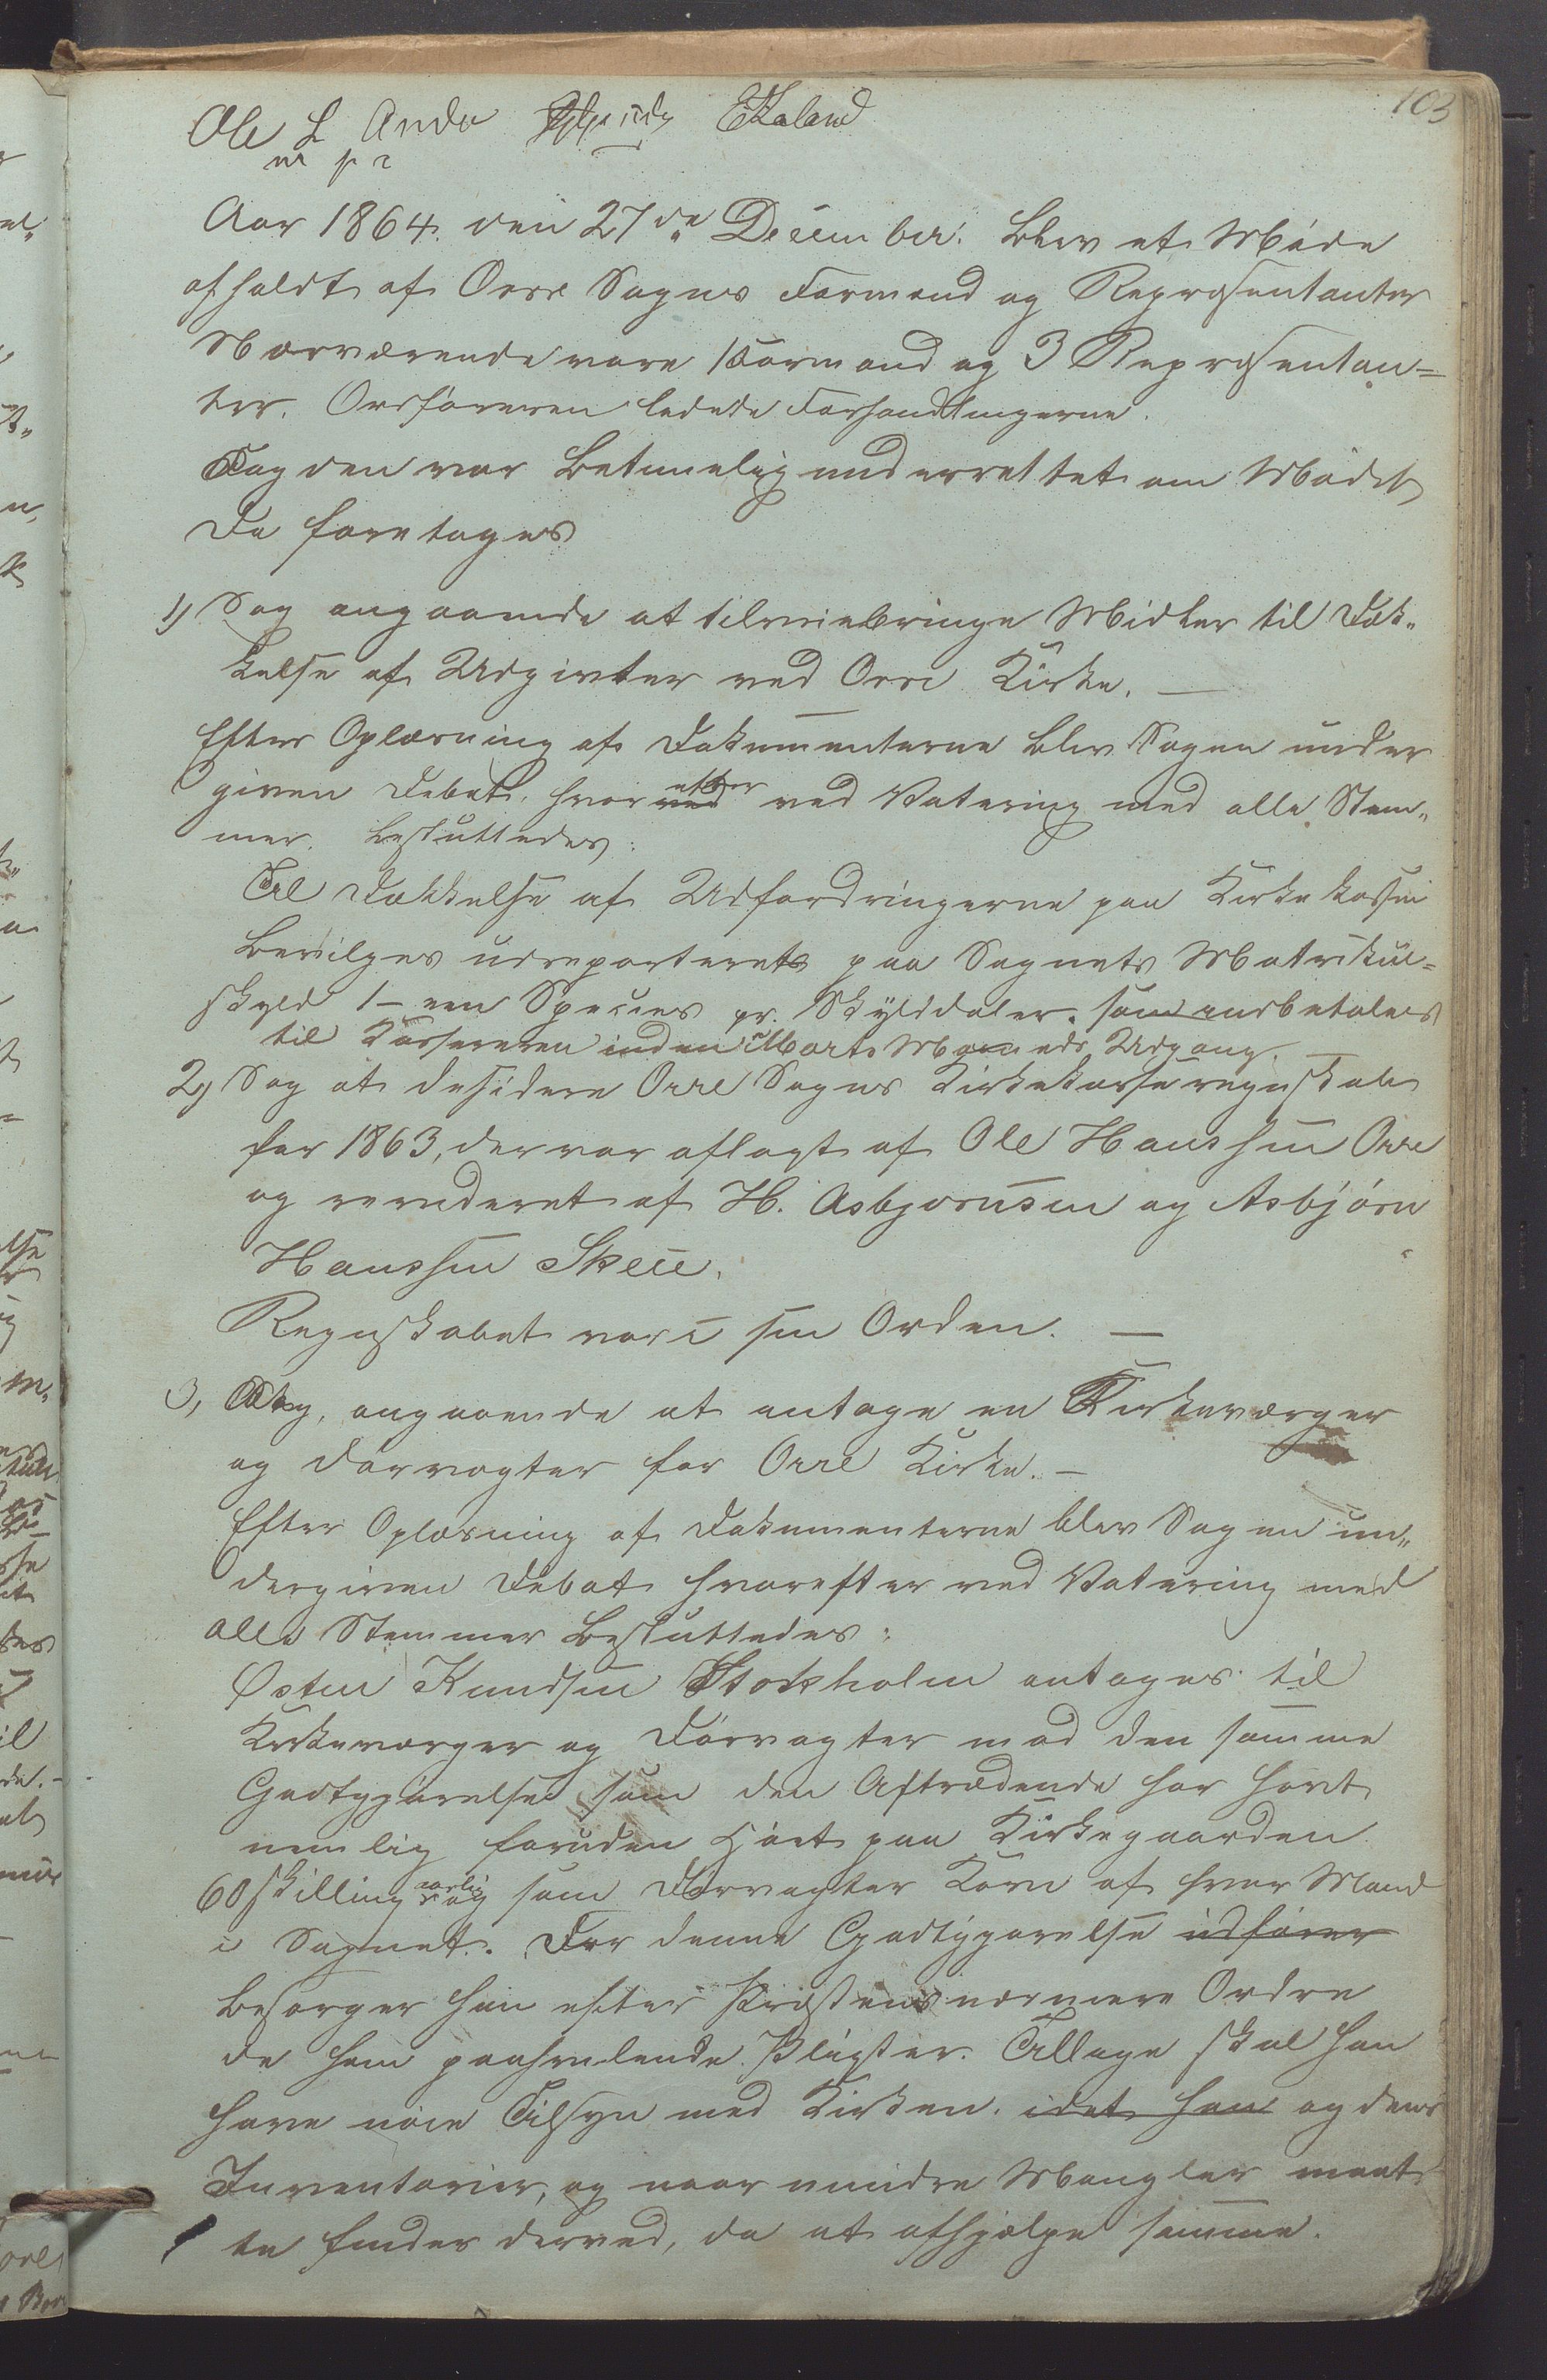 103
Ole L Anda EKaland
m p r
Aar 1864. den 27de December. blev et Møde
afholdt af Orre Sogns Formend og Repræsentanter
Nærværende vare 1 Formand og 3 Repræsentan=
ter. Ordføreren ledede Forhandlingerne.
Fogden var betimelig underrettet om Mødet
Da foretoges
1) Sag angaaende at tilveiebringe Midler til Dæk„
kelse af Udgivter ved Orre Kirke. —
Efter Oplæsning af Dokumenterne blev Sagen under
given Debat, hvorefter ved Votering med alle Stem„
mer. besluttedes:
Til Dækkelse af Udfordringerne paa Kirkekassen
bevilges udreparteret paa Sognets Matrikul=
skyld 1 – een Species pr. Skylddaler. som indbetales
til Kassereren inden Marts Maaneds Udgang. —
2) Sag at desidere Orre Sogns Kirkekasseregnskab
for 1863, der var aflagt af Ole Hanssen Orre
og revideret af H. Asbjørnsen og Asbjørn
Hanssen Skeie.
Regnskabet var i sin Orden. —
3, Sag, angaaende at antage en Kirkeværger
og Dørvogter for Orre Kirke. —
Efter Oplæsning af Dokumenterne blev Sagen un„
dergiven Debat hvorefter ved Votering med
alle Stemmer besluttedes:
Østen Knudsen Stokholm antages til
Kirkeværger og Dørvogter mod den samme
Godtgjørelse som den Aftrædende har havt
nemlig foruden Høet paa Kirkegaarden
60 skilling aarlig og som Dørvogter Korn af hver Mand
i Sognet. For denne Godtgjørelse udfører
besørger han efter Præstens nærmere Ordre
de ham paahvilende Pligter. Tillige skal han
have nøie Tilsyn med Kirken. idet han og dens
Inventarier, og naar mindre Mangler maat
te findes derved, da at afhjælpe samme.